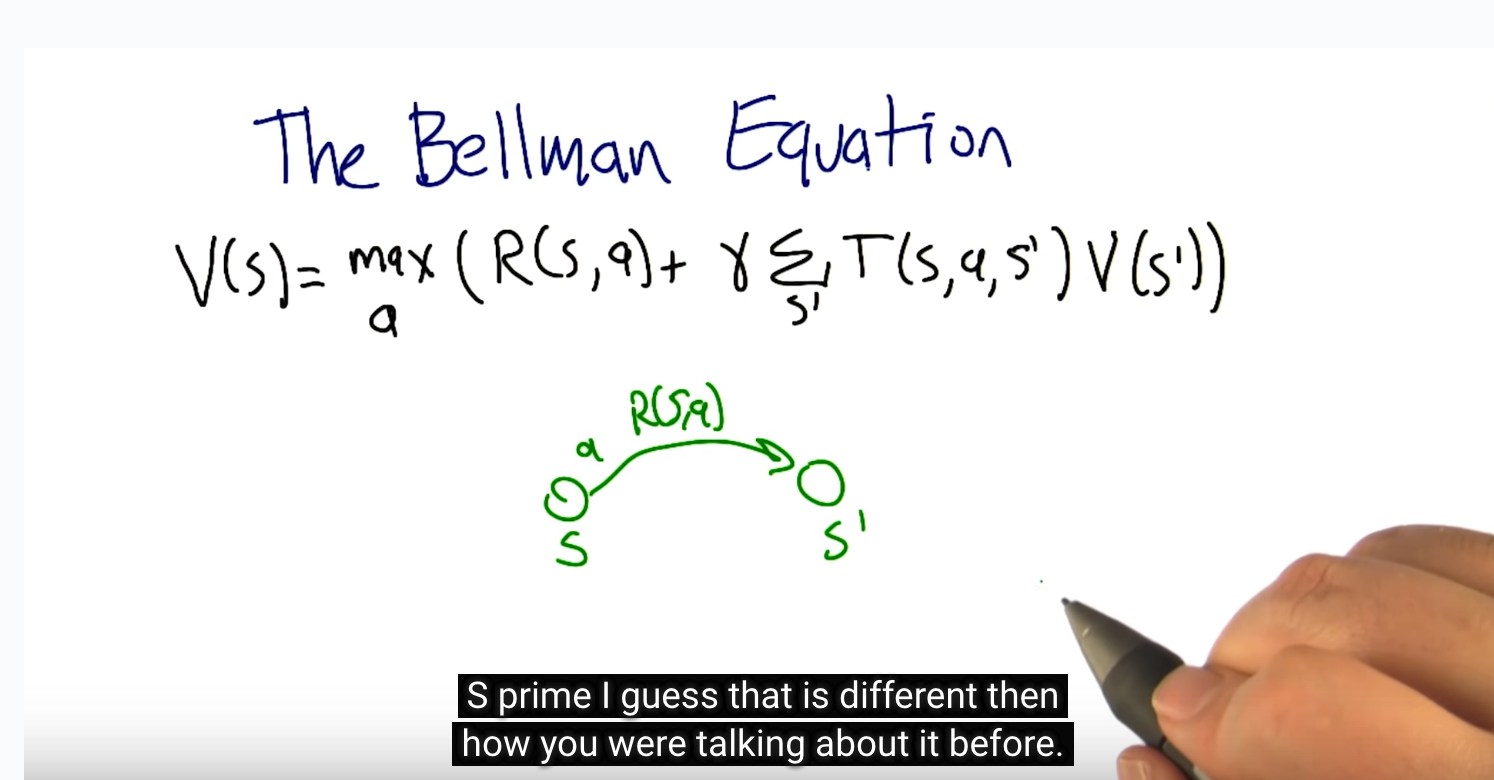 The Bellman Equation
V(s)= max ( R(s,a)+ γ Σ T(s,a,s') V(s'))
a s'
R(s,a)
a
s s'
S prime I guess that is different then
how you were talking about it before.